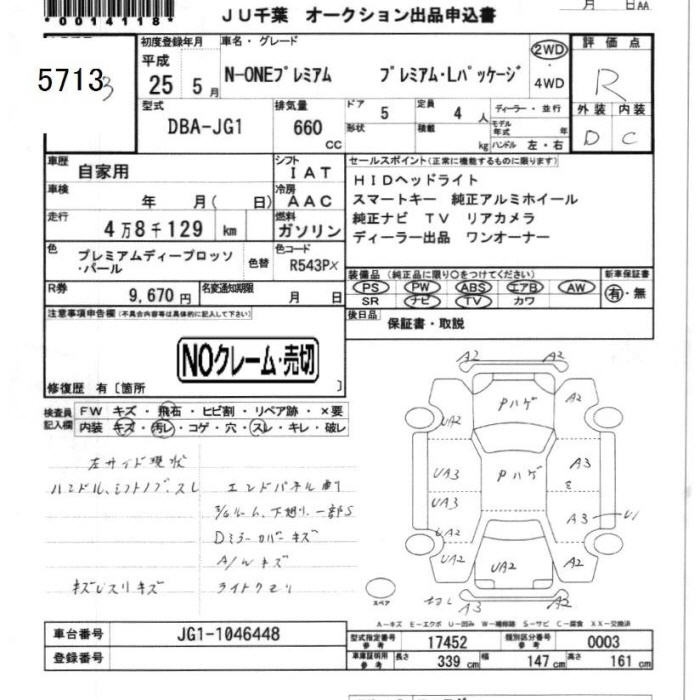 *0014118*
月 日AA
JU千葉 オークション出品申込書
5713
3
初度登録年月
平成
25 5月
車名・グレード
N-ONEプレミアム プレミアム・Lパッケージ
2WD
・
4WD
評価点
R
外装 内装
D C
型式
DBA-JG1
排気量
660
cc
ドア 5
定員 4 人
形状
積載 kg
ディーラー・並行
モデル年式 年
ハンドル 左・右
車歴 自家用
シフト IAT
車検 年 月( 日)
冷房 AAC
走行 4万8千129 km
燃料 ガソリン
セールスポイント(正常に機能するものに限ります)
HIDヘッドライト
スマートキー 純正アルミホイール
純正ナビ TV リアカメラ
ディーラー出品 ワンオーナー
色 プレミアムディープロッソ
・パール
色替
色コード
R543PX
装備品(純正品に限り○をつけてください)
PS PW ABS エアB AW
SR ナビ TV カワ
新車保証書
有・無
R券 9,670 円
名変通知期限 月 日
後日品 保証書・取説
注意事項申告欄(不具合内容等は具体的に記入して下さい)
NOクレーム・売切
修復歴 有〔箇所 〕
検査員記入欄
FW キズ・飛石・ヒビ割・リペア跡・×要
内装 キズ・汚レ・コゲ・穴・スレ・キレ・破レ
左サイド現状
ハンドル、シフトノブ、スレ
エンドパネル
Dミラーカバーキズ
A/Wキズ
ライトクモリ
キズレスリキズ
A2 A2
Pハゲ
UA2 A2
UA3 Pハゲ A3
UA3
A3 U1
UA2
UA2 UA2 A2
A3 A2
スペア
A－キズ E－エクボ U－凹み W－補修跡 S－サビ C－腐食 XX－交換済
車台番号 JG1-1046448
登録番号
型式指定番号
参考
17452
類別区分番号
参考
0003
車庫証明用
参考
長さ 339 cm 幅 147 cm 高さ 161 cm